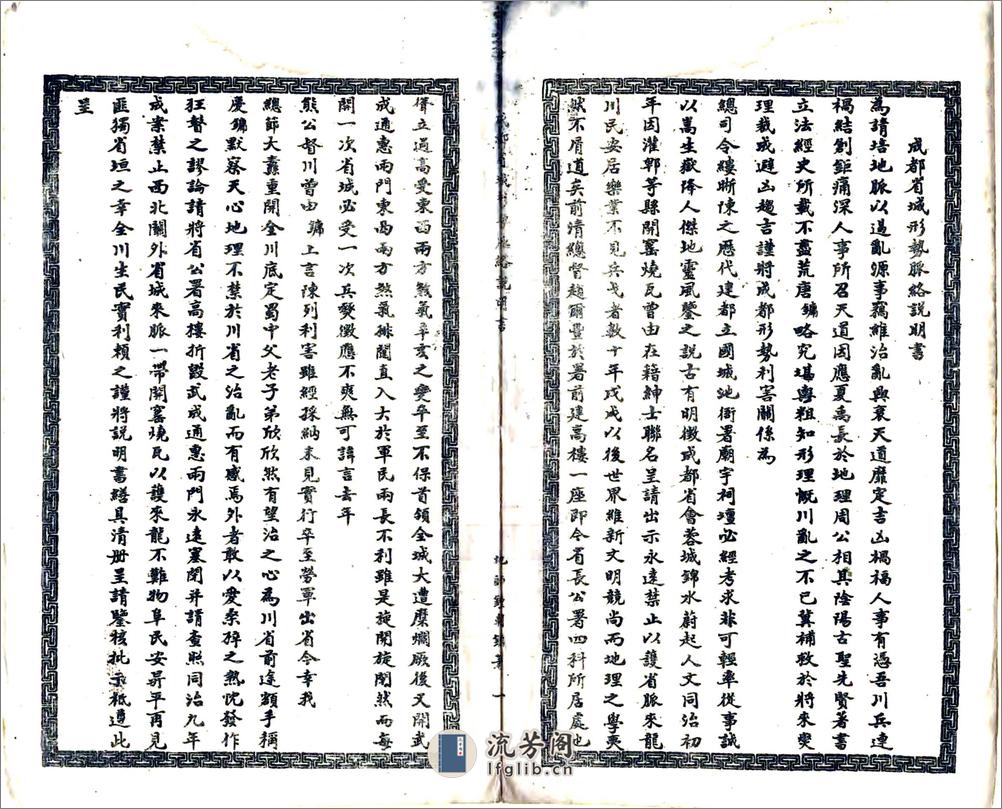 成都省城形勢脈絡說明書
為請培地脈以遏亂源事竊維治亂興衰天道靡定吉凶禍福人事有憑吾川兵連
禍結創鉅痛深人事所召天道因應夏禹長於地理周公相其陰陽古聖先賢著書
立法經史所載不盡荒唐鏽略究堪輿粗知形理慨川亂之不已冀補救於將來變
理裁成避凶趨吉謹將成都形勢利害關係為
總司令縷晰陳之歷代建都立國城池衙署廟宇祠壇必經考求非可輕率從事誠
以嵩生嶽降人傑地靈風鑒之說古有明徵成都省會蓉城錦水蔚起人文同治初
年因灌郫等縣開窰燒瓦曾由在籍紳士聯名呈請出示永遠禁止以護省脈來龍
川民安居樂業不見兵戈者數十年戊戌以後世界維新文明競尚而地理之學夷
然不屑道矣前清總督趙爾豐於署前建高樓一座即今省長公署四科所居處也
聳立過高受東西兩方煞氣辛亥之變卒至不保首領全城大遭糜爛厥後又開武
成通惠兩門東西兩方煞氣排闥直入大於軍民兩長不利雖是旋開旋閉然而每
開一次省城必受一次兵變徵應不爽無可諱言去年
熊公督川曾由鏽上言陳列利害雖經採納未見實行卒至勞軍出省今幸我
總節大纛重開全川底定蜀中父老子弟欣欣然有望治之心為川省前途額手稱
慶鏽默察天心地理不禁於川省之治亂而有感焉外者敢以愛桑梓之熱忱發作
狂瞽之謬論請將省公署高樓折毀武成通惠兩門永遠塞閉并請查照同治九年
成案禁止西北關外省城來脈一帶開窰燒瓦以護來龍不難物阜民安昇平再見
匪獨省垣之幸全川生民實利賴之謹將說明書繕具清册呈請鑒核批示祗遵此
呈
一
流芳阁
lfglib.cn